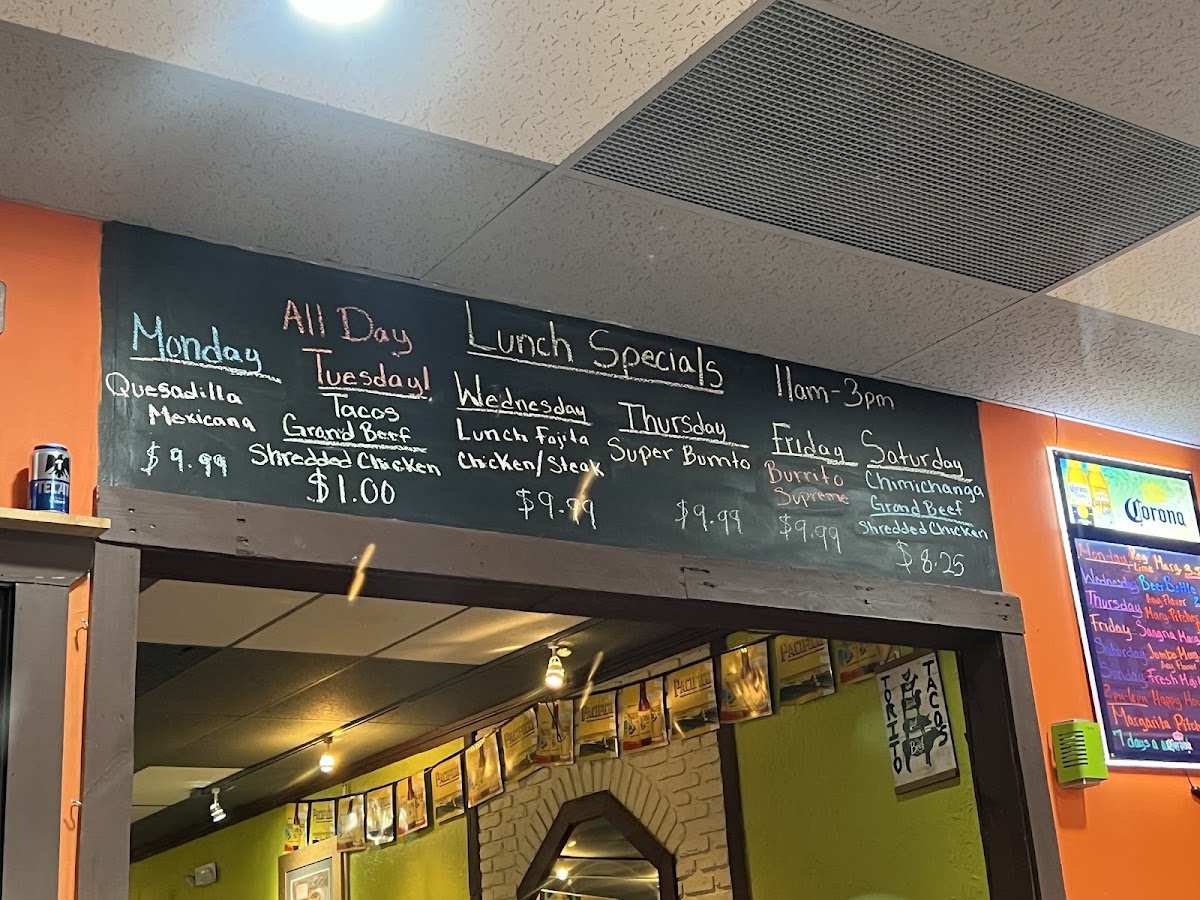 Lunch Specials
11am-3pm
Monday
Quesadilla
Mexicana
$9.99
All Day
Tuesday!
Tacos
Grand Beef
Shredded Chicken
$1.00
Wednesday
Lunch Fajita
Chicken/Steak
$9.99
Thursday
Super Burrito
$9.99
Friday
Burrito
Supreme
$9.99
Saturday
Chimichanga
Grand Beef
Shredded Chicken
$8.25
TECATE
Corona
Monday Reg Marg.
Lime
Wednesday Beer Bottle
Thursday Any Flavor
Marg Pitcher
Friday Sangria
Saturday Jumbo Marg
Any Flavor
Sunday Fresh
2pm-6pm Happy
Margarita
7 days a
PACIFICO
TORITO
TACOS